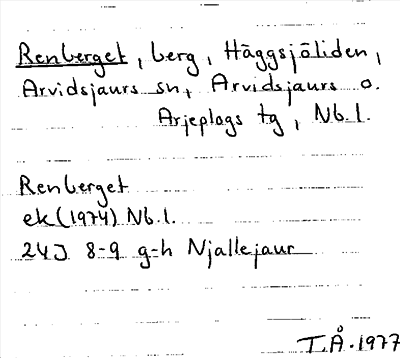 Renberget, berg, Häggsjöliden,
Arvidsjaurs sn, Arvidsjaurs o.
Arjeplogs tg, Nb.l.
Renberget
ek(1974) Nb.l.
24J 8-9 g-h Njallejaur
T.Å. 1977